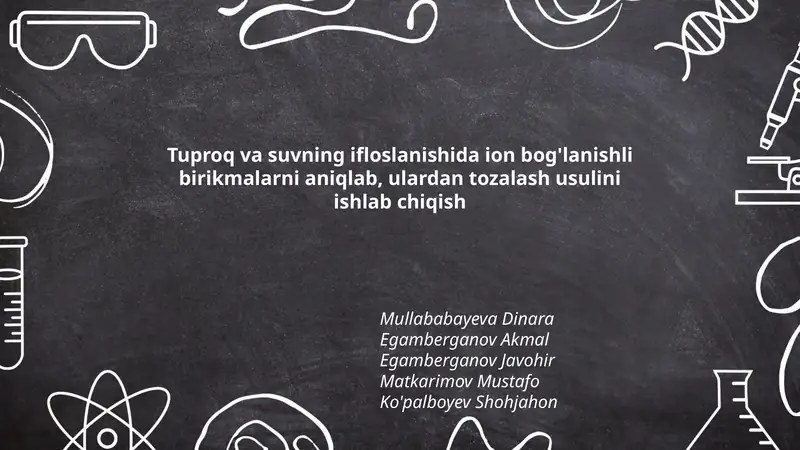 Tuproq va suvning ifloslanishida ion bog'lanishli
birikmalarni aniqlab, ulardan tozalash usulini
ishlab chiqish
Mullababayeva Dinara
Egamberganov Akmal
Egamberganov Javohir
Matkarimov Mustafo
Ko'palboyev Shohjahon